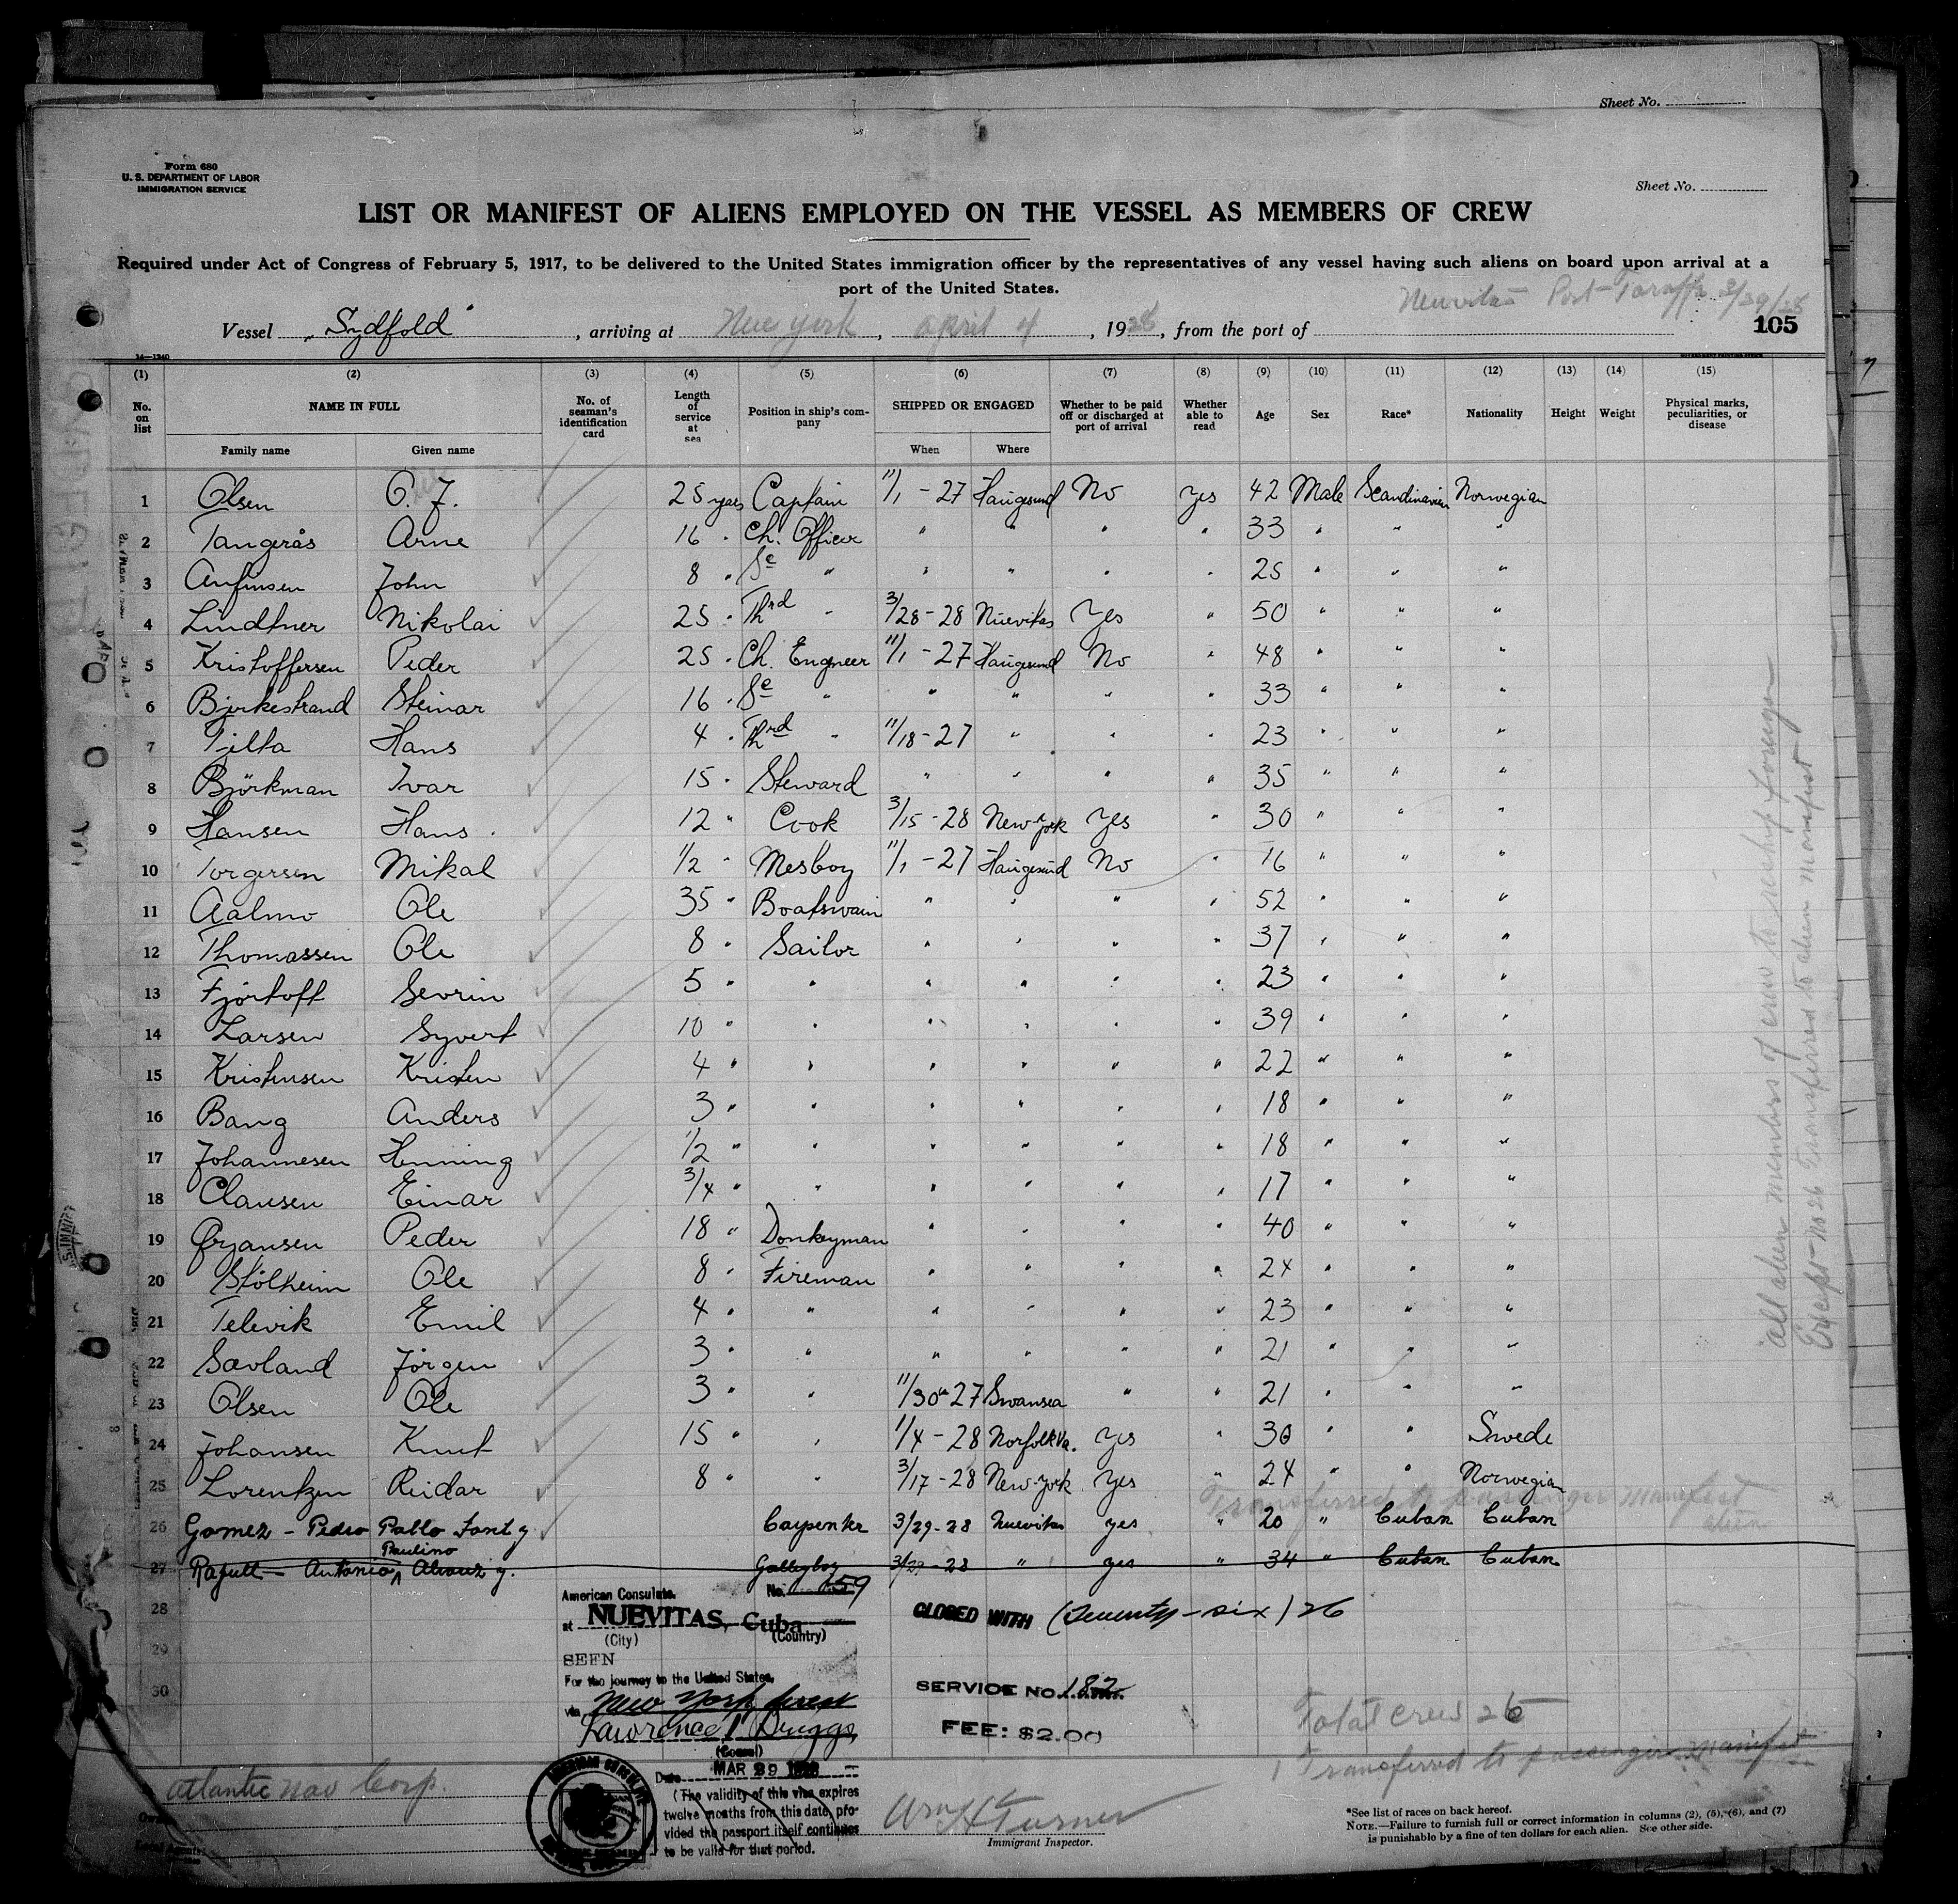 Sheet No.
Form 680
U. S. DEPARTMENT OF LABOR
IMMIGRATION SERVICE
Sheet No.
LIST OR MANIFEST OF ALIENS EMPLOYED ON THE VESSEL AS MEMBERS OF CREW
Required under Act of Congress of February 5, 1917, to be delivered to the United States immigration officer by the representatives of any vessel having such aliens on board upon arrival at a
port of the United States.
Vessel "Sydfold", arriving at New York, April 4, 1928, from the port of Nuevitas Port-Tarafa 3/29/28
105
(1) (2) (3) (4) (5) (6) (7) (8) (9) (10) (11) (12) (13) (14) (15)
No. on list NAME IN FULL No. of seaman's identification card Length of service at sea Position in ship's company SHIPPED OR ENGAGED Whether to be paid off or discharged at port of arrival Whether able to read Age Sex Race* Nationality Height Weight Physical marks, peculiarities, or disease
Family name Given name When Where
1 Olsen O. J. 25 years Captain 11/1-27 Haugesund No yes 42 Male Scandinavien Norwegian
2 Tangerås Arne 16 " Ch. Officer " " " " 33 " " "
3 Anfinsen John 8 " Se " " " " " 25 " " "
4 Lindtner Nikolai 25 " Thrd " 3/28-28 Nuevitas Yes " 50 " " "
5 Kristoffersen Peder 25 " Ch. Engneer 11/1-27 Haugesund No " 48 " " "
6 Bjørkestrand Steinar 16 " Se " " " " " 33 " " "
7 Tilta Hans 4 " Thrd " 11/18-27 " " " 23 " " "
8 Björkman Ivar 15 " Steward " " " " 35 " " "
9 Hansen Hans 12 " Cook 3/15-28 New-York Yes " 30 " " "
10 Torgersen Mikal 1/2 " Mesboy 11/1-27 Haugesund No " 16 " " "
11 Aalmo Ole 35 " Boatswain " " " " 52 " " "
12 Thomassen Ole 8 " Sailor " " " " 37 " " "
13 Fjørtoft Sevrin 5 " " " " " " 23 " " "
14 Larsen Syvert 10 " " " " " " 39 " " "
15 Kristensen Kristen 4 " " " " " " 22 " " "
16 Bang Anders 3 " " " " " " 18 " " "
17 Johannesen Henning 1/2 " " " " " " 18 " " "
18 Clausen Einar 3/4 " " " " " " 17 " " "
19 Ørjansen Peder 18 " Donkeyman " " " " 40 " " "
20 Stölheim Ole 8 " Fireman " " " " 24 " " "
21 Televik Emil 4 " " " " " " 23 " " "
22 Sævland Jörgen 3 " " " " " " 21 " " "
23 Olsen Ole 3 " " 11/30-27 Swansea " " 21 " " "
24 Johansen Knut 15 " " 1/4-28 Norfolk Va. Yes " 30 " " Swede
25 Lorentzen Reidar 8 " " 3/17-28 New-York Yes " 24 " " Norwegian
Transferred to passenger manifest
alien
26 Gomez - Pedro Pablo Font y. Carpenter 3/29-28 Nuevitas yes " 20 " Cuban Cuban
Paulino
27 Rafull - Antonio Alvarez y. Galleyboy 3/29-28 " yes " 34 " Cuban Cuban
28
29
30
All alien members of crew to reship foreign
Except No 26 Transferred to alien manifest
American Consulate.
No. 159
at NUEVITAS, Cuba
(City) (Country)
SEEN
For the journey to the United States,
via New York direct
(Consul)
Date MAR 29 1928
(The validity of this visa expires
twelve months from this date, pro-
vided the passport itself continues
to be valid for that period.
CLOSED WITH (Twenty-six) 26
SERVICE NO. 182
FEE: $2.00
Total crew 26
1 Transferred to passenger manifest
Atlantic Nav Corp.
Wm H Turner
Immigrant Inspector.
*See list of races on back hereof.
NOTE.—Failure to furnish full or correct information in columns (2), (5), (6), and (7)
is punishable by a fine of ten dollars for each alien. See other side.